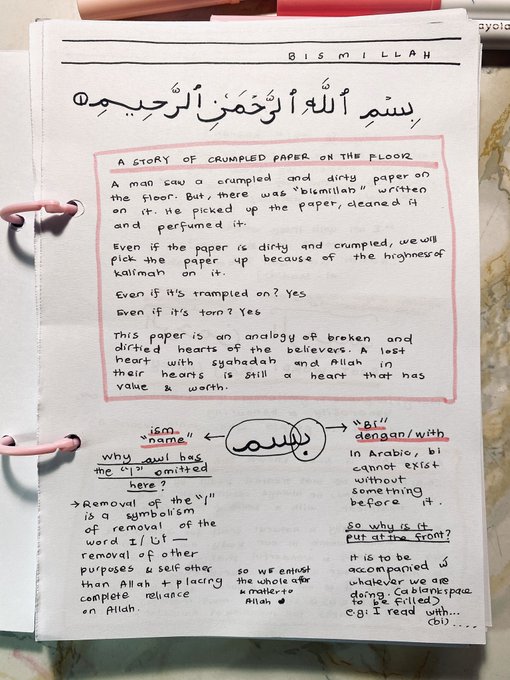 ayola
BISMILLAH
بِسْمِ ٱللَّهِ ٱلرَّحْمَٰنِ ٱلرَّحِيمِ ①
A STORY OF CRUMPLED PAPER ON THE FLOOR
A man saw a crumpled and dirty paper on
the floor. But, there was "bismillah" written
on it. He picked up the paper, cleaned it
and perfumed it.
Even if the paper is dirty and crumpled, we will
pick the paper up because of the highness of
kalimah on it.
Even if it's trampled on? Yes
Even if it's torn? Yes
This paper is an analogy of broken and
dirtied hearts of the believers. A lost
heart with syahadah and Allah in
their hearts is still a heart that has
value & worth.
ism
"name"
بسم
"Bi"
dengan/with
why اسم has
the "ا" omitted
here?
→ Removal of the "ا"
is a symbolism
of removal of the
word I/أنا —
removal of other
purposes & self other
than Allah + placing
complete reliance
on Allah.
so we entrust
the whole affair
& matter to
Allah
In Arabic, bi
cannot exist
without
something
before it.
so why is it
put at the front?
It is to be
accompanied w
whatever we are
doing. (a blank space
to be filled)
e.g: I read with...
(bi) .....